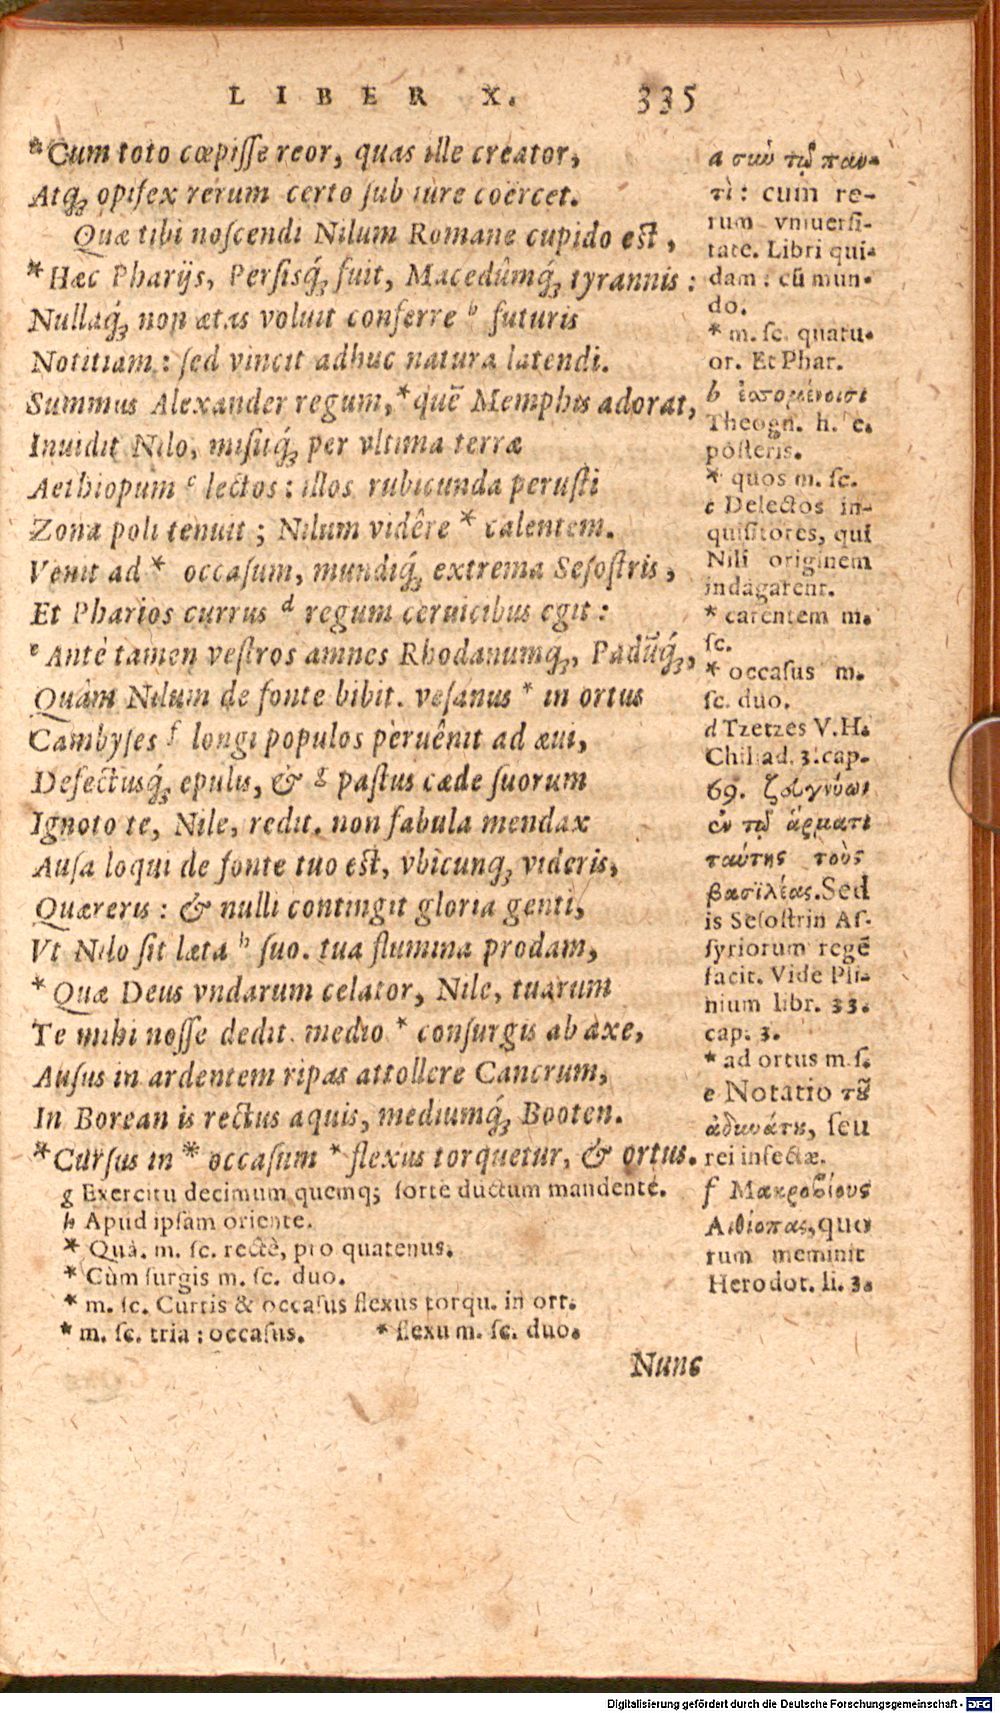 LIBER X. 335
*Cum toto cœpiſſe reor, quas ille creator,
Atq; opifex rerum certo ſub iure coërcet.
Quæ tibi noſcendi Nilum Romane cupido eſt,
*Hæc Pharijs, Perſisq́; fuit, Macedûmq́; tyrannis:
Nullaq́; non ætas voluit conferre ᵇ futuris
Notitiam: ſed vincit adhuc natura latendi.
Summus Alexander regum, * quē Memphis adorat,
Inuidit Nilo, miſitq́; per vltima terræ
Aethiopum ᶜ lectos: illos rubicunda peruſti
Zona poli tenuit; Nilum vidêre * calentem.
Venit ad * occaſum, mundiq́; extrema Seſoſtris,
Et Pharios currus ᵈ regum ceruicibus egit:
ᵉ Antè tamen veſtros amnes Rhodanumq́;, Padūq́;,
Quàm Nilum de fonte bibit. veſanus * in ortus
Cambyſes ᶠ longi populos peruênit ad æui,
Defectusq́; epulis, & ᵍ paſtus cæde ſuorum
Ignoto te, Nile, redit. non fabula mendax
Auſa loqui de fonte tuo eſt, vbicunq; videris,
Quæreris: & nulli contingit gloria genti,
Vt Nilo ſit læta ʰ ſuo. tua flumina prodam,
* Quæ Deus vndarum celator, Nile, tuarum
Te mihi noſſe dedit. medio * conſurgis ab axe,
Auſus in ardentem ripas attollere Cancrum,
In Borean is rectus aquis, mediumq́; Booten.
*Curſus in * occaſum * flexus torquetur, & ortus.
g Exercitu decimum quemq; ſorte ductum mandente.
h Apud ipſam oriente.
* Quà. m. ſc. rectè, pro quatenus.
* Cùm ſurgis m. ſc. duo.
* m. ſc. Curris & occaſus flexus torqu. in ort.
* m. ſc. tria: occaſus. * flexu m. ſc. duo.
Nunc
a σιωὺ τῷ παν-
τὶ: cum re-
rum vniuerſi-
tate. Libri qui-
dam: cū mun-
do.
* m. ſc. quatu-
or. Et Phar.
b ἐσσομένοισι
Theogn. h. e.
poſteris.
* quos m. ſc.
c Delectos in-
quiſitores, qui
Nili originem
indagarent.
* carentem m.
ſc.
* occaſus m.
ſc. duo.
d Tzetzes V. H.
Chiliad. 3. cap.
69. ζευγνύωι
ἐν τῷ ἅρματι
ταύτης τοὺς
βασιλέας. Sed
is Seſoſtrin Aſ-
ſyriorum regē
facit. Vide Pli-
nium libr. 33.
cap. 3.
* ad ortus m. ſ.
e Notatio τοῦ
ἀδυνάτου, ſeu
rei infectæ.
f Μακροβίους
Αἰθίοπας, quo
rum meminit
Herodot. li. 3.
Digitalisierung gefördert durch die Deutsche Forschungsgemeinschaft - DFG